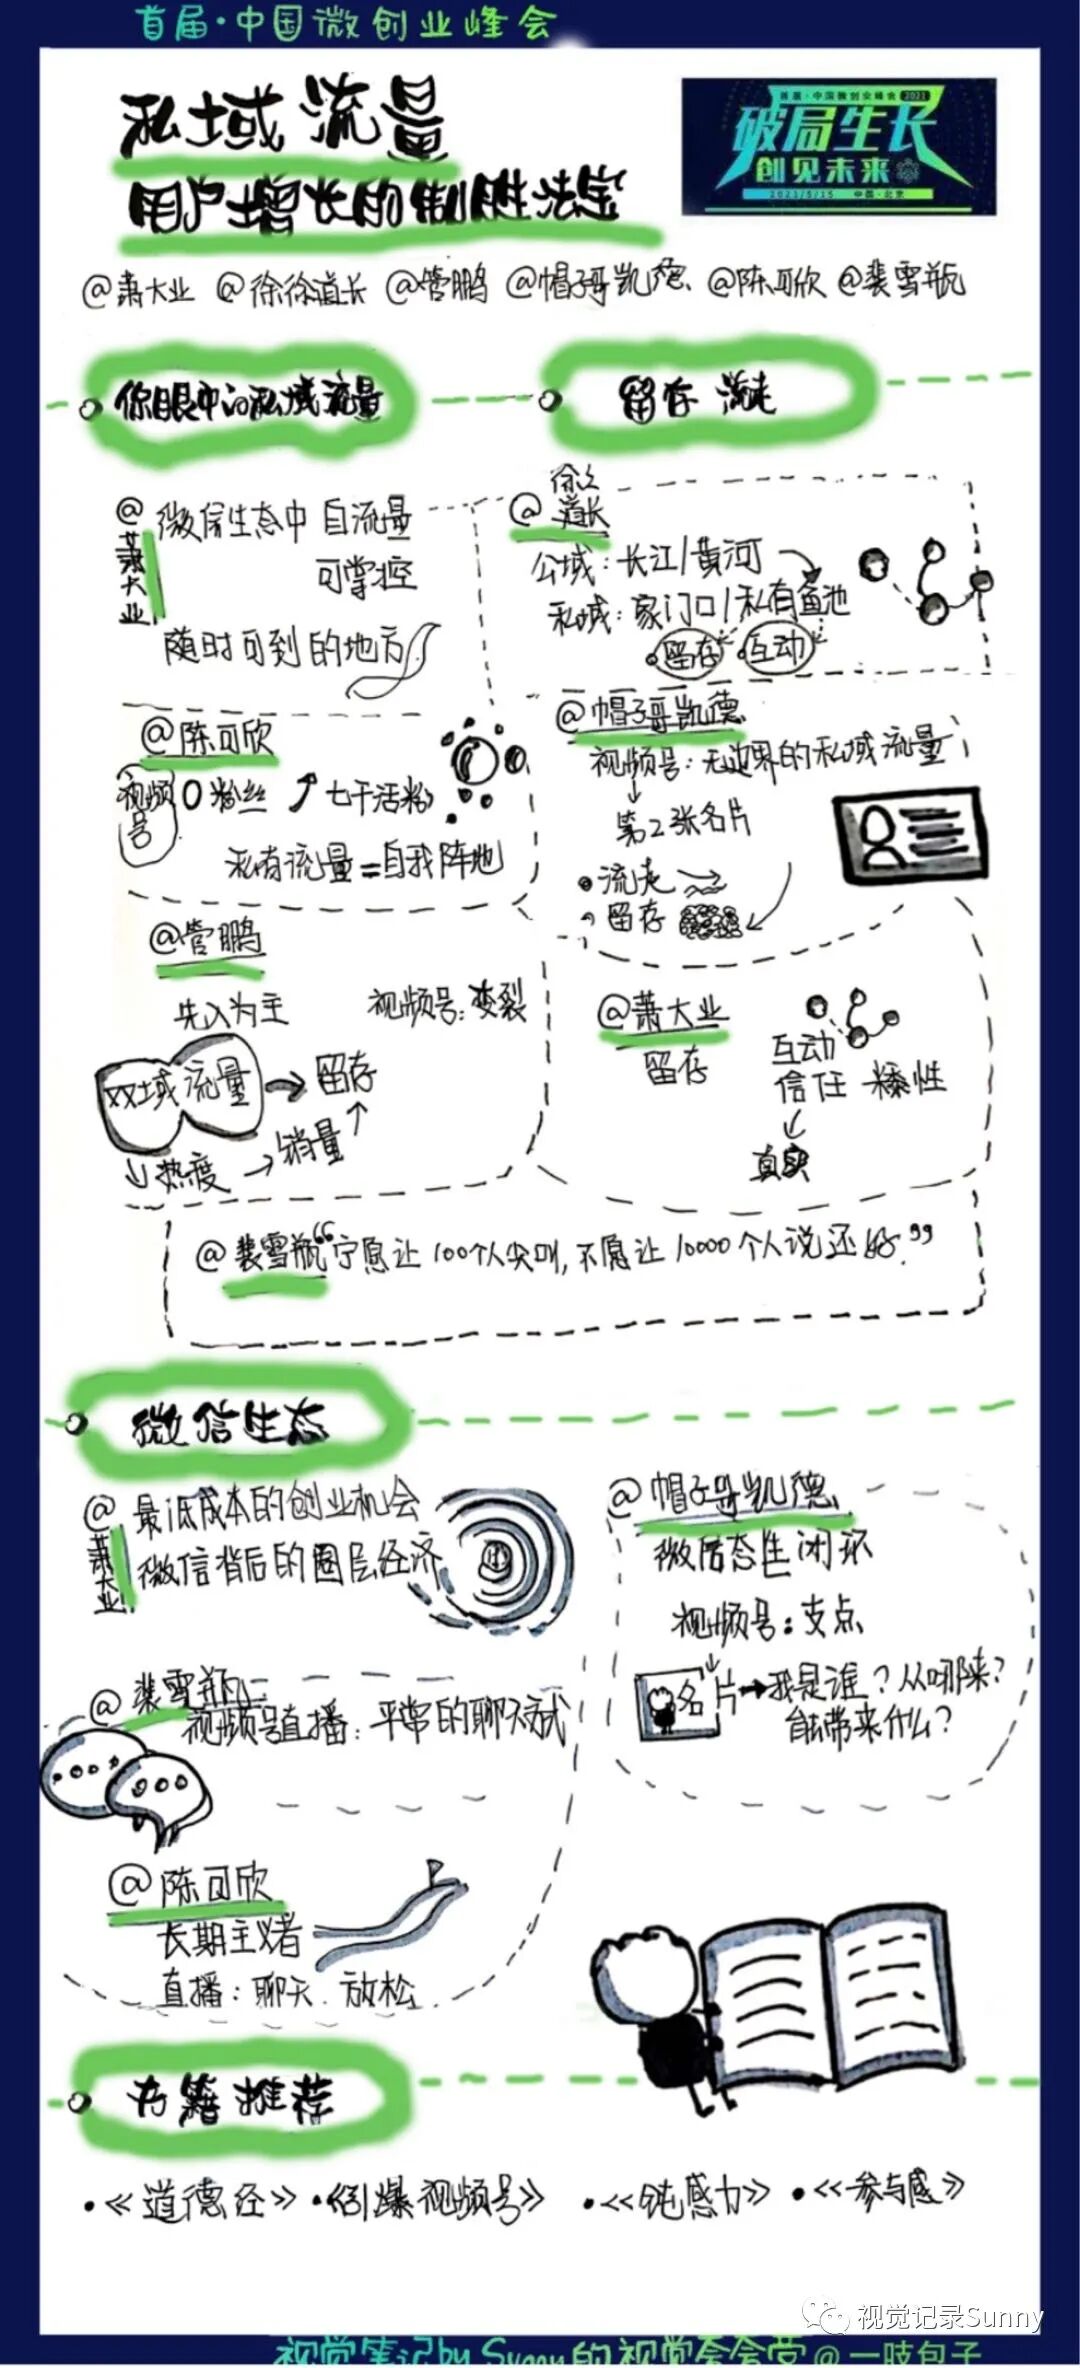 首届·中国微创业峰会
私域流量
用户增长的制胜法宝
首届·中国微创业峰会 2021
破局生长
创见未来
2021/5/15 中国·北京
@萧大业 @徐徐道长 @管鹏 @帽子哥凯德 @陈可欣 @裴雪瓶
你眼中的私域流量
留存 流走
@萧大业
微信生态中 自流量
可掌控
随时可到的地方
@徐徐道长
公域：长江/黄河
私域：家门口/私有鱼池
留存 互动
@陈可欣
视频号 0粉丝 七千活粉
私有流量=自我阵地
@帽子哥凯德
视频号：无边界的私域流量
第2张名片
流走
留存
@管鹏
先入为主 视频号：变裂
双域流量 留存
热度 销量
@萧大业
留存
互动
信任 黏性
真实
@裴雪瓶“宁愿让100个人尖叫,不愿让10000个人说还好.”
微信生态
@萧大业
最低成本的创业机会
微信背后的圈层经济
@帽子哥凯德
微信态生闭环
视频号：支点
名片 我是谁？从哪来？
能带来什么？
@裴雪瓶：
视频号直播：平常的聊天式
@陈可欣
长期主义者
直播：聊天 放松
书籍推荐
•《道德经》 •《引爆视频号》 •《钝感力》 •《参与感》
视觉记录Sunny
视觉笔记by Sunny的视觉会会堂@一吱包子